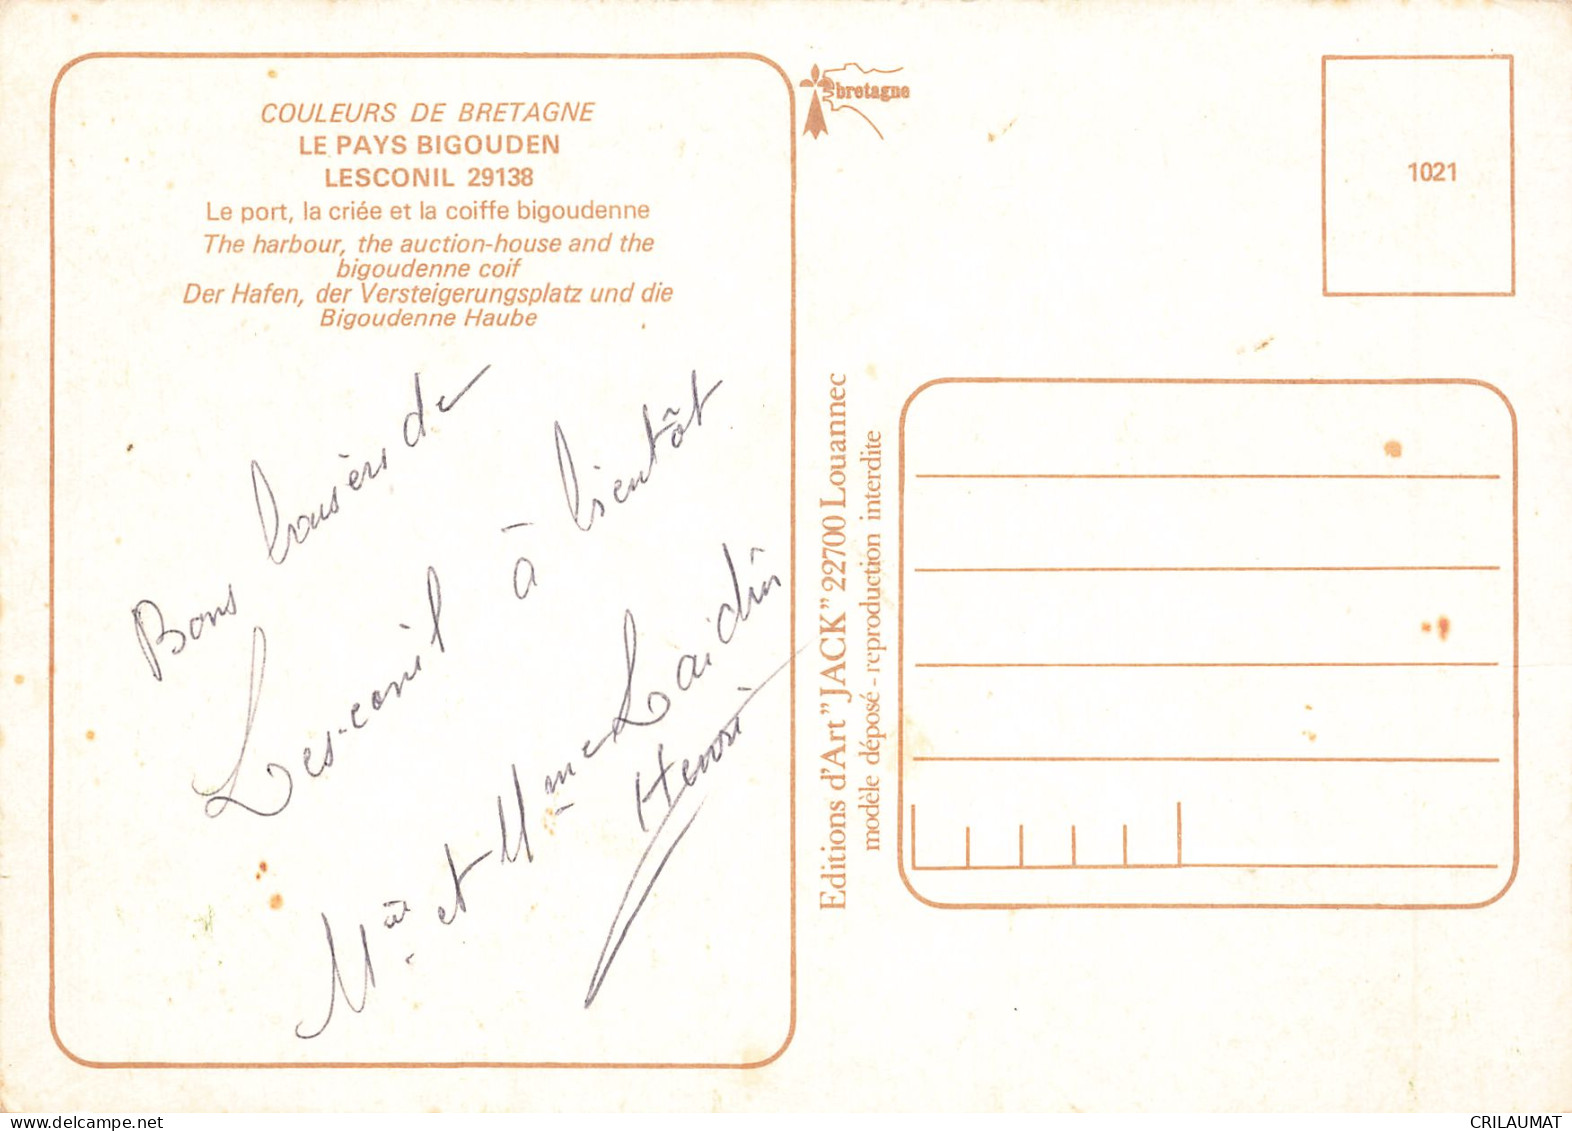 COULEURS DE BRETAGNE
LE PAYS BIGOUDEN
LESCONIL 29138
Le port, la criée et la coiffe bigoudenne
The harbour, the auction-house and the
bigoudenne coif
Der Hafen, der Versteigerungsplatz und die
Bigoudenne Haube
Bons baisers de
Lesconil à bientôt
et Mme
Henri
bretagne
1021
Editions d'Art "JACK" 22700 Louannec
modèle déposé - reproduction interdite
delcampe.net
CRILAUMAT